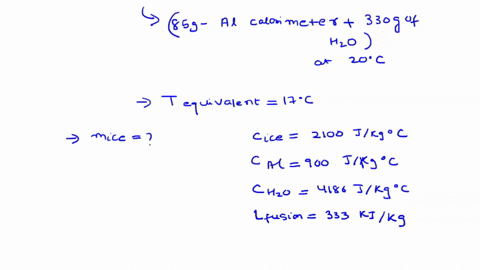 ↳ (85g- Al calorimeter + 330g of
H₂O)
at 20°C
→ T equivalent = 17°C
→ mice = ?
Cice = 2100 J/kg°C
CAl = 900 J/kg°C
CH₂O = 4186 J/kg°C
Lfusion = 333 KJ/kg